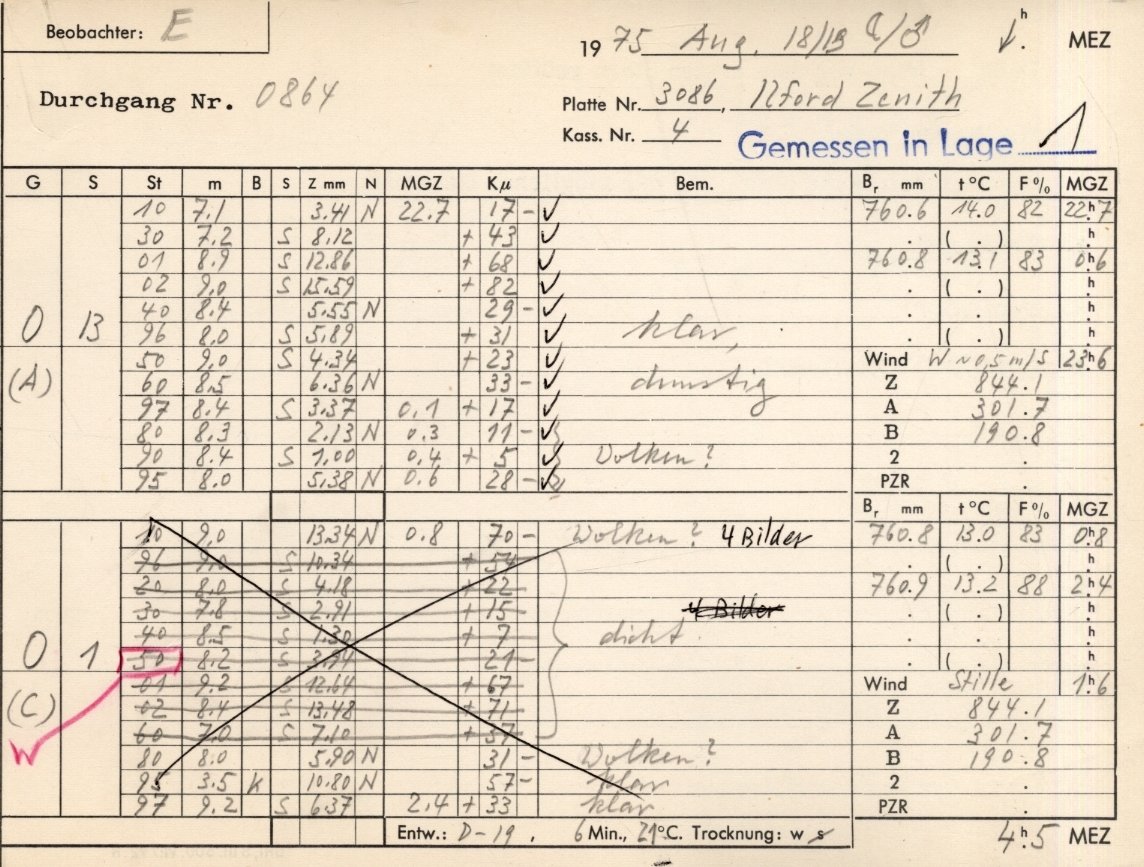 Beobachter: E
1975 Aug. 18/19 ☾/♂ h. MEZ
Durchgang Nr. 0864
Platte Nr. 3086, Ilford Zenith
Kass. Nr. 4 Gemessen in Lage 1
G S St m B S Z mm N MGZ Kμ Bem. Br mm t °C F% MGZ
10 7.1 3.41 N 22.7 17 - ✓ 760.6 14.0 82 22h.7
30 7.2 S 8.12 + 43 ✓ . ( . ) h.
01 8.9 S 12.86 + 68 ✓ 760.8 13.1 83 0h.6
02 9.0 S 15.59 + 82 ✓ . ( . ) h.
40 8.4 5.55 N 29 - ✓ . . h.
0 13 96 8.0 S 5.89 + 31 ✓ klar, . ( . ) h.
50 9.0 S 4.34 + 23 ✓ Wind W ~ 0,5 m/s 23h.6
(A) 60 8.5 6.36 N 33 - ✓ dunstig Z 844.1
97 8.4 S 3.37 0.1 + 17 ✓ A 301.7
80 8.3 2.13 N 0.3 11 - ✓ B 190.8
90 8.4 S 1.00 0.4 + 5 ✓ Wolken? 2 .
95 8.0 5.38 N 0.6 28 - ✓ PZR .
Br mm t °C F% MGZ
10 9.0 13.34 N 0.8 70 - Wolken? 4 Bilder 760.8 13.0 83 0h.8
96 9.0 S 10.34 + 54 . ( . ) h.
20 8.0 S 4.18 + 22 760.9 13.2 88 2h.4
30 7.8 S 2.91 + 15 4 Bilder . ( . ) h.
40 8.5 S 1.30 + 7 dicht . . h.
0 1 50 8.2 S 3.94 21 - . ( . ) h.
01 9.2 S 12.64 + 67 Wind Stille 1h.6
(C) 02 8.4 S 13.48 + 71 Z 844.1
60 7.0 S 7.10 + 37 A 301.7
W 80 8.0 5.90 N 31 - Wolken? B 190.8
95 3.5 K 10.80 N 57 - klar 2 .
97 9.2 S 6.37 2.4 + 33 klar PZR .
Entw.: D-19. 6 Min., 21°C. Trocknung: w s 4h.5 MEZ